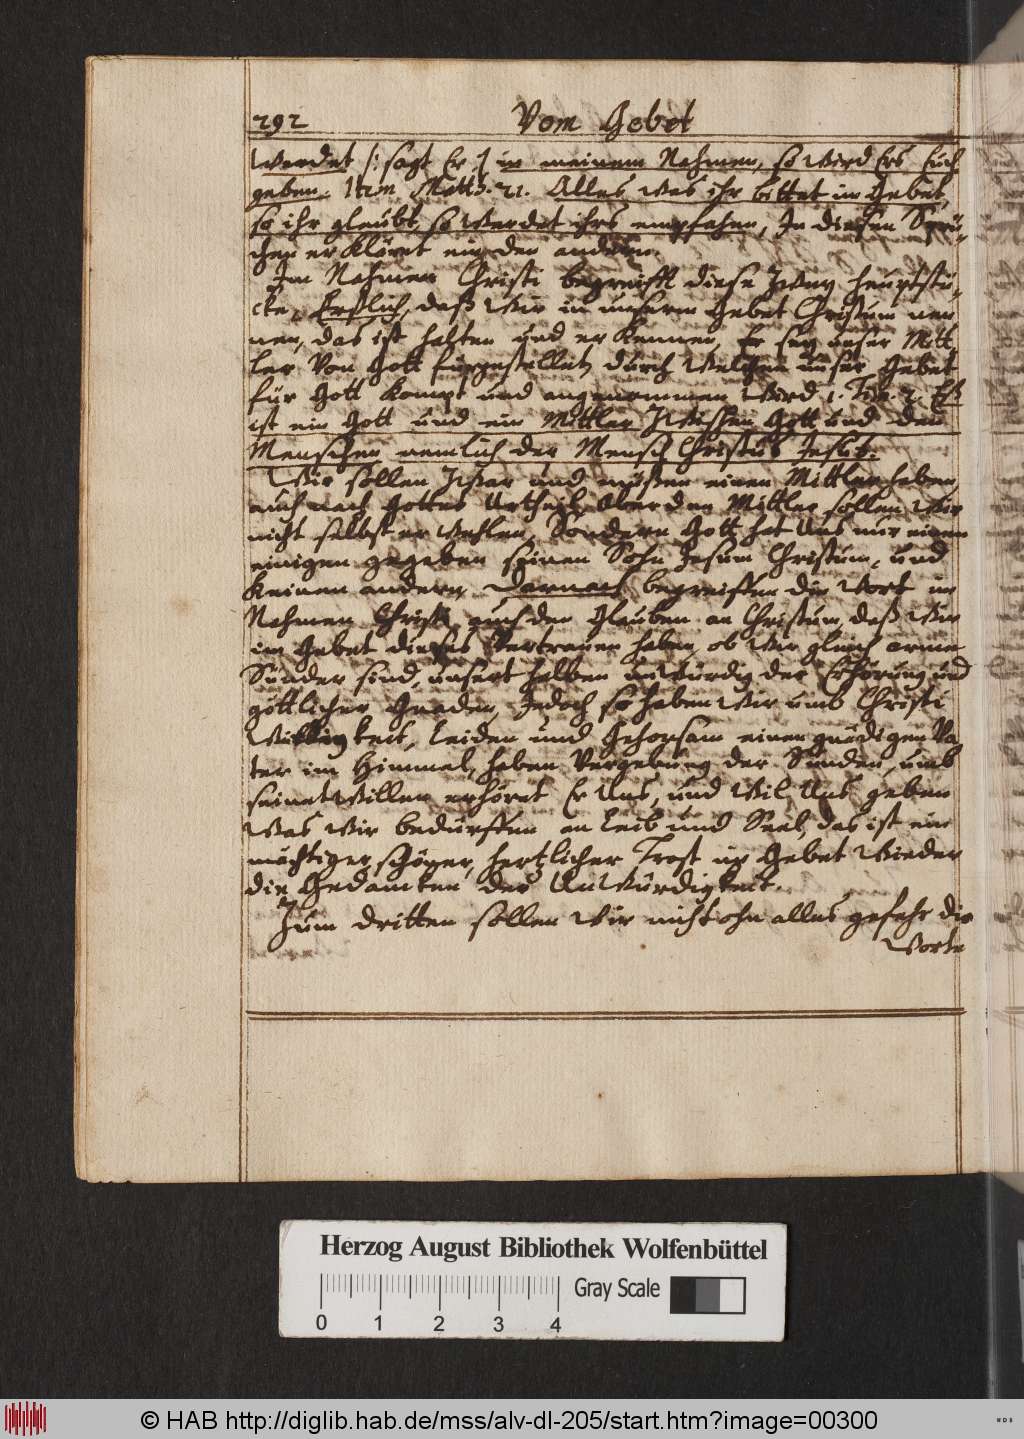 292 Vom Gebet
Werdet /: sagt Er :/ in meinem Nahmen, so wird Ers Euch
geben. Item, Matth. 21. Alles was ihr bittet im Gebet,
so ihr glaubt, so werdet ihrs empfahen, In diesen Sprü-
chen erkläret ein den andern.
Im Nahmen Christi begreifft diese Zwey heuptstü-
cke, Erstlich, daß wir in unserm Gebet Christum nen
nen, das ist halten und erkennen, Er sey unser Mitt
ler von Gott fürgestellet, durch welchen unser Gebet
für Gott kompt und angenommen wird 1. Tim. 2. Eß
ist ein Gott und ein Mittler Zwischen Gott und den
Menschen nemlich der Mensch Christus Jesus.
Wir sollen Zwar und müßen einen Mittler haben
auch nach Gottes Urtheil, Aber den Mittler sollen wir
nicht selbst erwehlen, Sondern Gott hat Uns nur einen
einigen gegeben seinen Sohn Jesum Christum, und
keinen andern, Darnach begreiffen die Wort im
Nahmen Christi, auch den Glauben an Christum, daß wir
im Gebet dieses Vertrauen haben, ob wir gleich arme
Sünder sind, unsert halben unwürdig der Erhörung und
göttlicher Gnaden, Jedoch so haben wir umb Christi
keit, Leiden und Gehorsam einen gnädigen Va
ter im Himmel, haben Vergebung der Sünden, umb
seinet willen erhöret Er Uns, und wil Uns geben
was wir bedürffen an Leib und Seel, das ist ein
mächtiger, schöner, hertzlicher Trost im Gebet wieder
die Gedancken der Unwürdigkeit.
Zum dritten sollen wir nicht ohn alles gefehr die
Worte
Herzog August Bibliothek Wolfenbüttel
Gray Scale
0 1 2 3 4
© HAB http://diglib.hab.de/mss/alv-dl-205/start.htm?image=00300